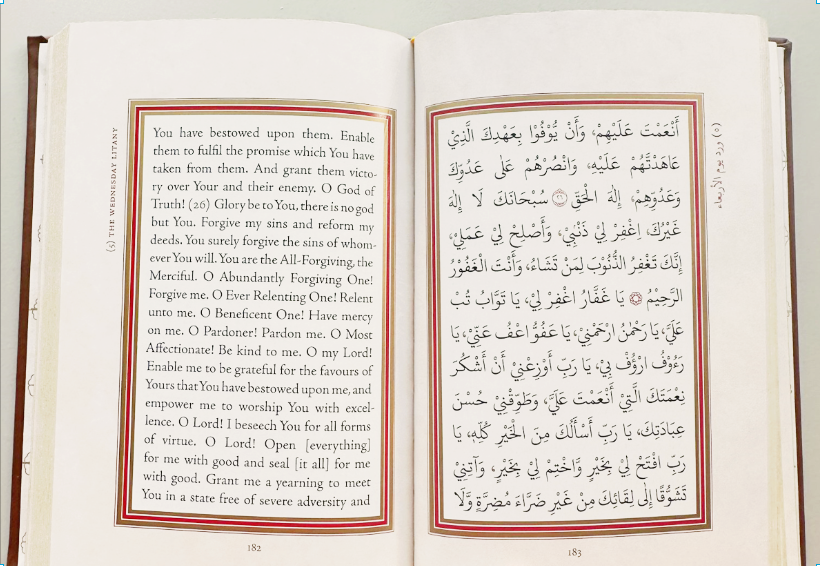 (5) THE WEDNESDAY LITANY
You have bestowed upon them. Enable
them to fulfil the promise which You have
taken from them. And grant them victo-
ry over Your and their enemy. O God of
Truth! (26) Glory be to You, there is no god
but You. Forgive my sins and reform my
deeds. You surely forgive the sins of whom-
ever You will. You are the All-Forgiving, the
Merciful. O Abundantly Forgiving One!
Forgive me. O Ever Relenting One! Relent
unto me. O Beneficent One! Have mercy
on me. O Pardoner! Pardon me. O Most
Affectionate! Be kind to me. O my Lord!
Enable me to be grateful for the favours of
Yours that You have bestowed upon me, and
empower me to worship You with excel-
lence. O Lord! I beseech You for all forms
of virtue. O Lord! Open [everything]
for me with good and seal [it all] for me
with good. Grant me a yearning to meet
You in a state free of severe adversity and
182
(٥) ورد يوم الأربعاء
أَنْعَمْتَ عَلَيْهِمْ، وَأَنْ يُّوْفُوْا بِعَهْدِكَ الَّذِيْ
عَاهَدْتَّهُمْ عَلَيْهِ، وَانْصُرْهُمْ عَلٰى عَدُوِّكَ
وَعَدُوِّهِمْ، إِلٰهَ الْحَقِّ ۝٢٦ سُبْحَانَكَ لَا إِلٰهَ
غَيْرُكَ، اِغْفِرْ لِيْ ذَنْبِيْ، وَأَصْلِحْ لِيْ عَمَلِيْ،
إِنَّكَ تَغْفِرُ الذُّنُوْبَ لِمَنْ تَشَاءُ، وَأَنْتَ الْغَفُوْرُ
الرَّحِيْمُ ۝ يَا غَفَّارُ اغْفِرْ لِيْ، يَا تَوَّابُ تُبْ
عَلَيَّ، يَا رَحْمٰنُ ارْحَمْنِيْ، يَا عَفُوُّ اعْفُ عَنِّيْ، يَا
رَءُوْفُ ارْؤُفْ بِيْ، يَا رَبِّ أَوْزِعْنِيْ أَنْ أَشْكُرَ
نِعْمَتَكَ الَّتِيْ أَنْعَمْتَ عَلَيَّ، وَطَوِّقْنِيْ حُسْنَ
عِبَادَتِكَ، يَا رَبِّ أَسْأَلُكَ مِنَ الْخَيْرِ كُلِّهٖ، يَا
رَبِّ افْتَحْ لِيْ بِخَيْرٍ وَّاخْتِمْ لِيْ بِخَيْرٍ، وَآتِنِيْ
تَشَوُّقًا إِلٰى لِقَائِكَ مِنْ غَيْرِ ضَرَّاءَ مُضِرَّةٍ وَّلَا
183